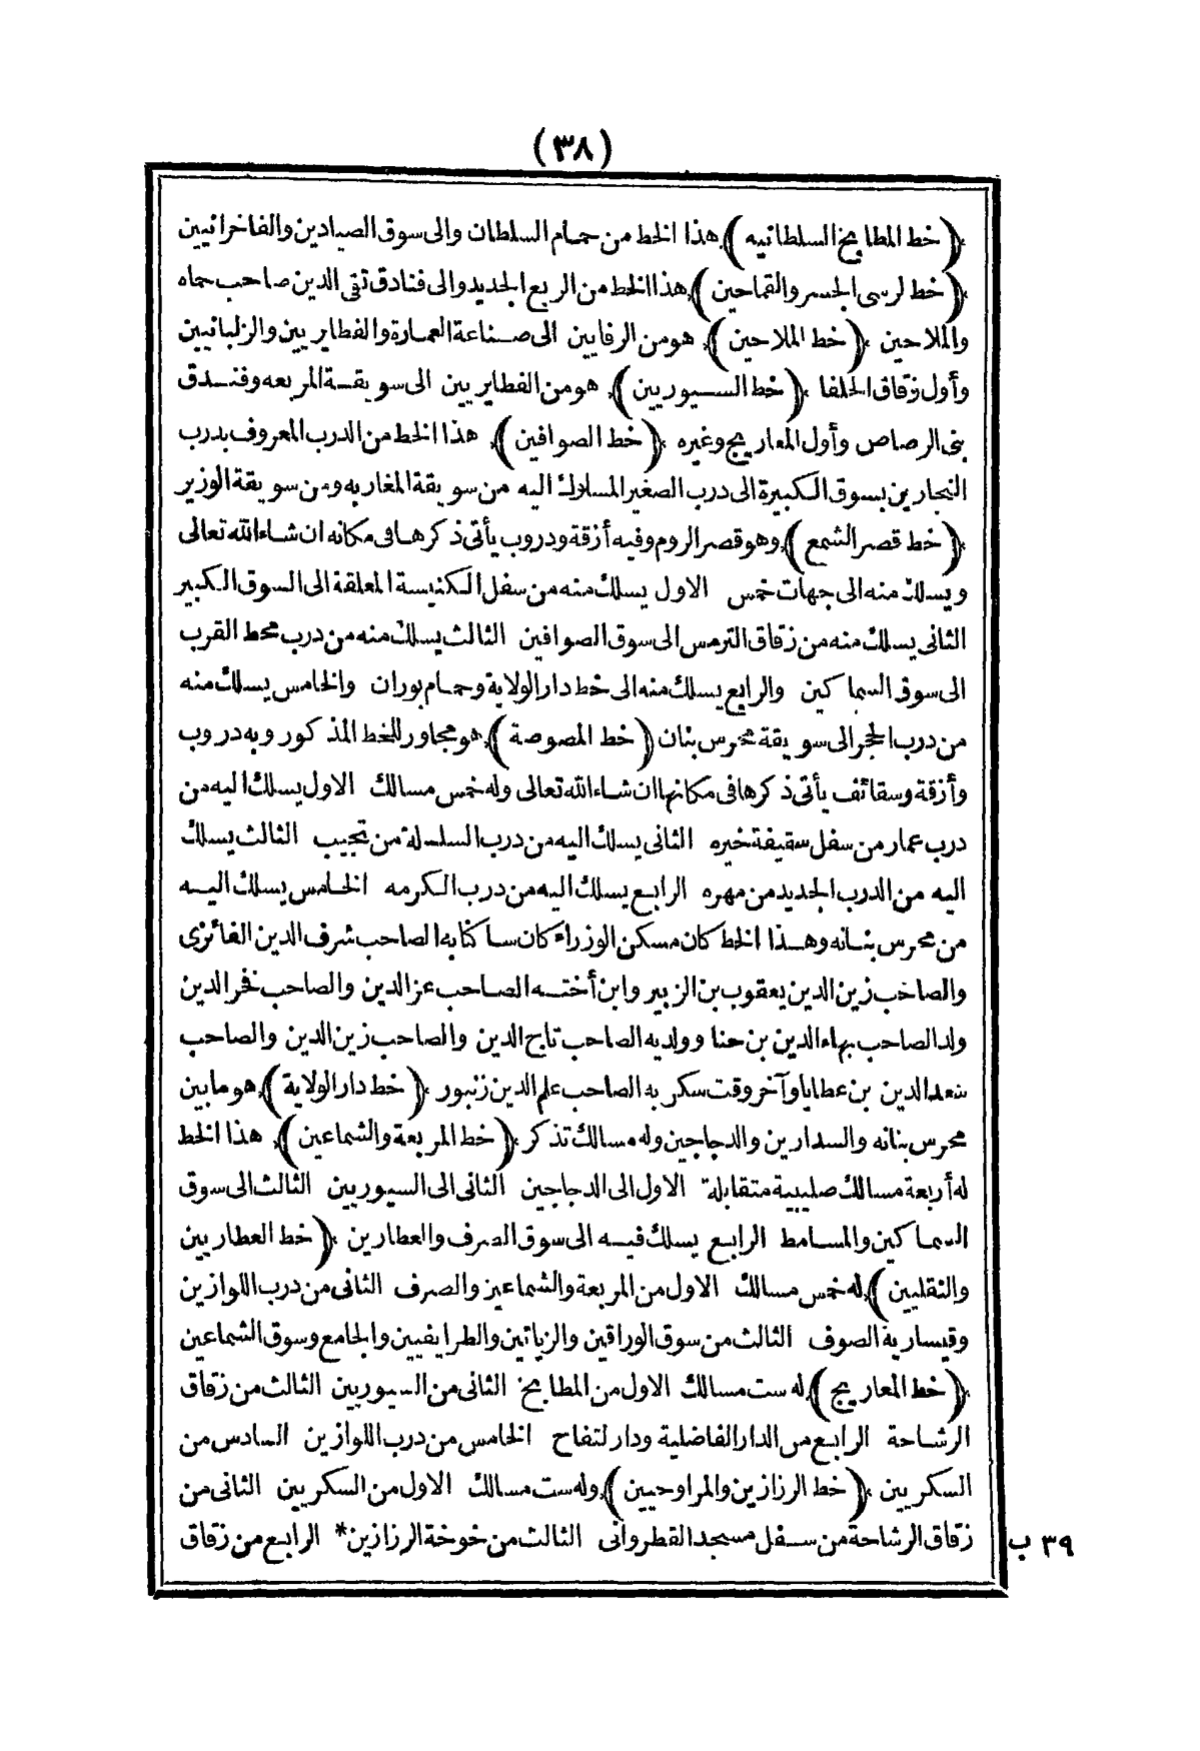 (٣٨)
(خط المطابخ السلطانيه) هذا الخط من حمام السلطان والى سوق الصيادين والفاخرانيين
(خط لرسى الجسر والقماحين) هذا الخط من الربع الجديد والى فنادق تقى الدين صاحب حماه
والملاحين (خط الملاحين) هو من الرفايين الى صناعة العمارة والفطايريين والزلبانيين
وأول زقاق الحلفا (خط السيوريين) هو من الفطايريين الى سويقة المربعه وفندق
بنى الرصاص وأول المعاريج وغيره (خط الصوافين) هذا الخط من الدرب المعروف بدرب
النجارين بسوق الكبيرة الى درب الصغير المسلوك اليه من سويقة المغاربه ومن سويقة الوزير
(خط قصر الشمع) وهو قصر الروم وفيه أزقة ودروب يأتى ذكرها فى مكانه ان شاء الله تعالى
ويسلك منه الى جهات خمس الاول يسلك منه من سفل الكنيسة المعلقة الى السوق الكبير
الثانى يسلك منه من زقاق الترمس الى سوق الصوافين الثالث يسلك منه من درب محط القرب
الى سوق السماكين والرابع يسلك منه الى خط دار الولاية وحمام بوران والخامس يسلك منه
من درب الحجر الى سويقة محرس بنان (خط المصوصة) هو مجاور للخط المذكور وبه دروب
وأزقة وسقائف يأتى ذكرها فى مكانها ان شاء الله تعالى وله خمس مسالك الاول يسلك اليه من
درب عمار من سفل سقيفة خيره الثانى يسلك اليه من درب السلسلة من تجيب الثالث يسلك
اليه من الدرب الجديد من مهره الرابع يسلك اليه من درب الكرمه الخامس يسلك اليه
من محرس بنانه وهذا الخط كان مسكن الوزراء كان ساكنا به الصاحب شرف الدين الفائزى
والصاحب زين الدين يعقوب بن الزبير وابن أخته الصاحب عز الدين والصاحب فخر الدين
ولد الصاحب بهاء الدين بن حنا وولديه الصاحب تاج الدين والصاحب زين الدين والصاحب
سعد الدين بن عطايا وآخر وقت سكن به الصاحب علم الدين زنبور (خط دار الولاية) هو ما بين
محرس بنانه والسدارين والدجاجين وله مسالك تذكر (خط المربعة والشماعين) هذا الخط
له أربعة مسالك صليبية متقابلة الاول الى الدجاجين الثانى الى السيوريين الثالث الى سوق
السماكين والمسامط الرابع يسلك فيه الى سوق الصرف والعطارين (خط العطاريين
والنقليين) له خمس مسالك الاول من المربعة والشماعين والصرف الثانى من درب اللوازين
وقيسارية الصوف الثالث من سوق الوراقين والزياتين والطرايفيين والجامع وسوق الشماعين
(خط المعاريج) له ست مسالك الاول من المطابخ الثانى من السيوريين الثالث من زقاق
الرشاحة الرابع من الدار الفاضلية ودار لتفاح الخامس من درب اللوازين السادس من
السكريين (خط الرزازين والمراوحيين) وله ست مسالك الاول من السكريين الثانى من
زقاق الرشاحة من سفل مسجد القطروانى الثالث من خوخة الرزازين* الرابع من زقاق
٣٩ ب